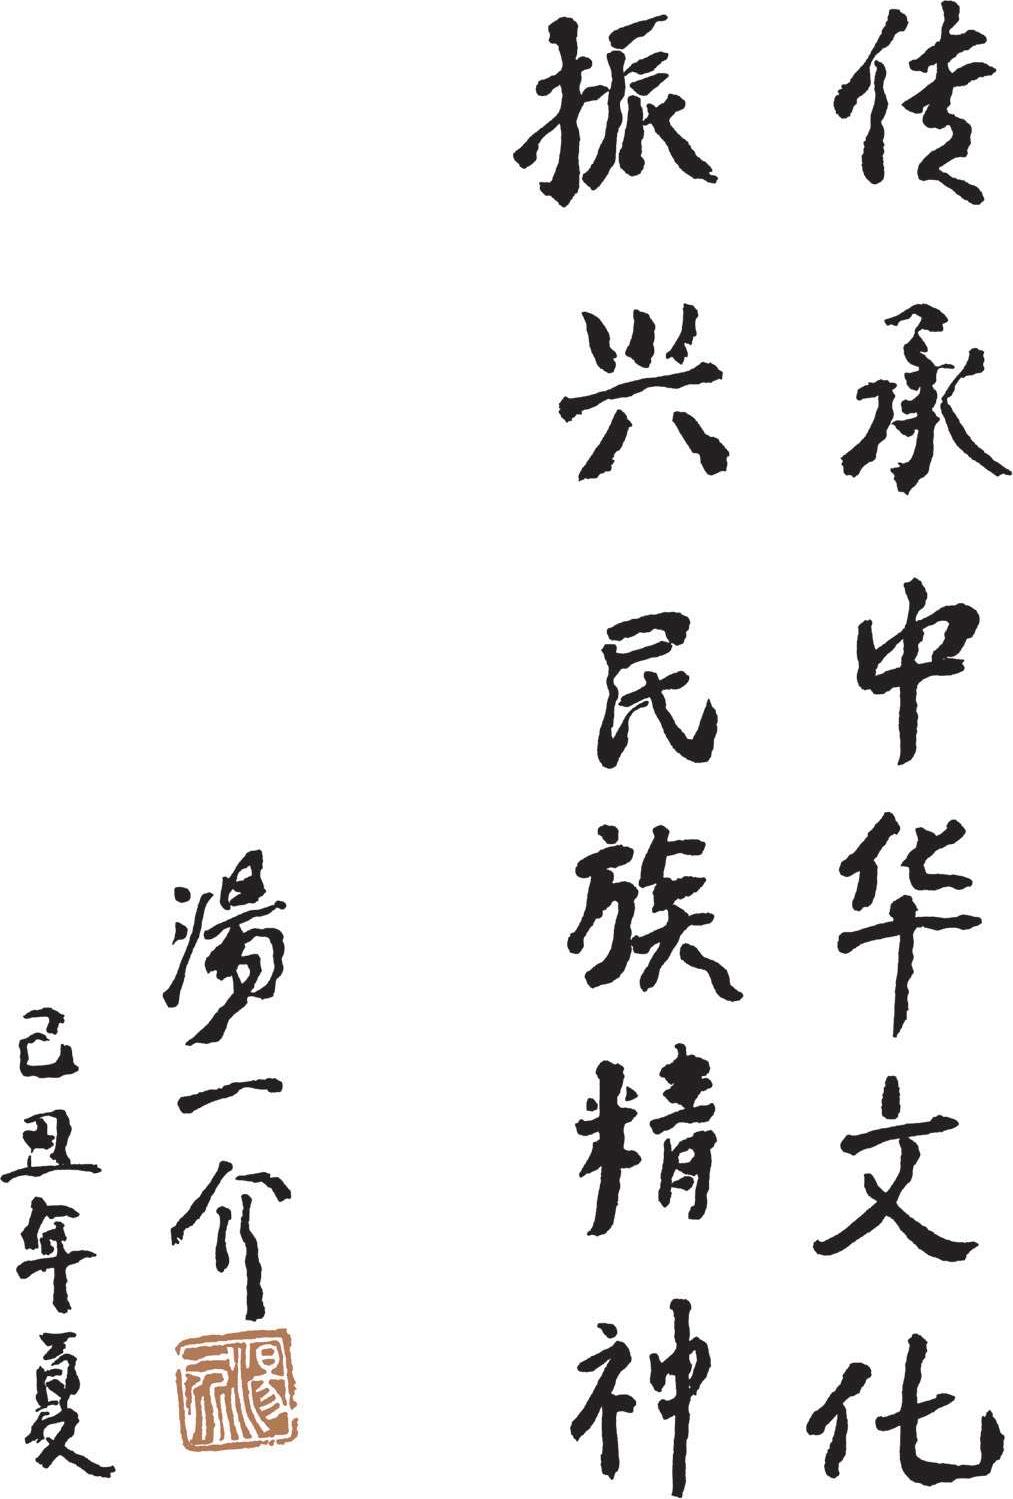 传承中华文化
振兴民族精神
湯一介
己丑年夏